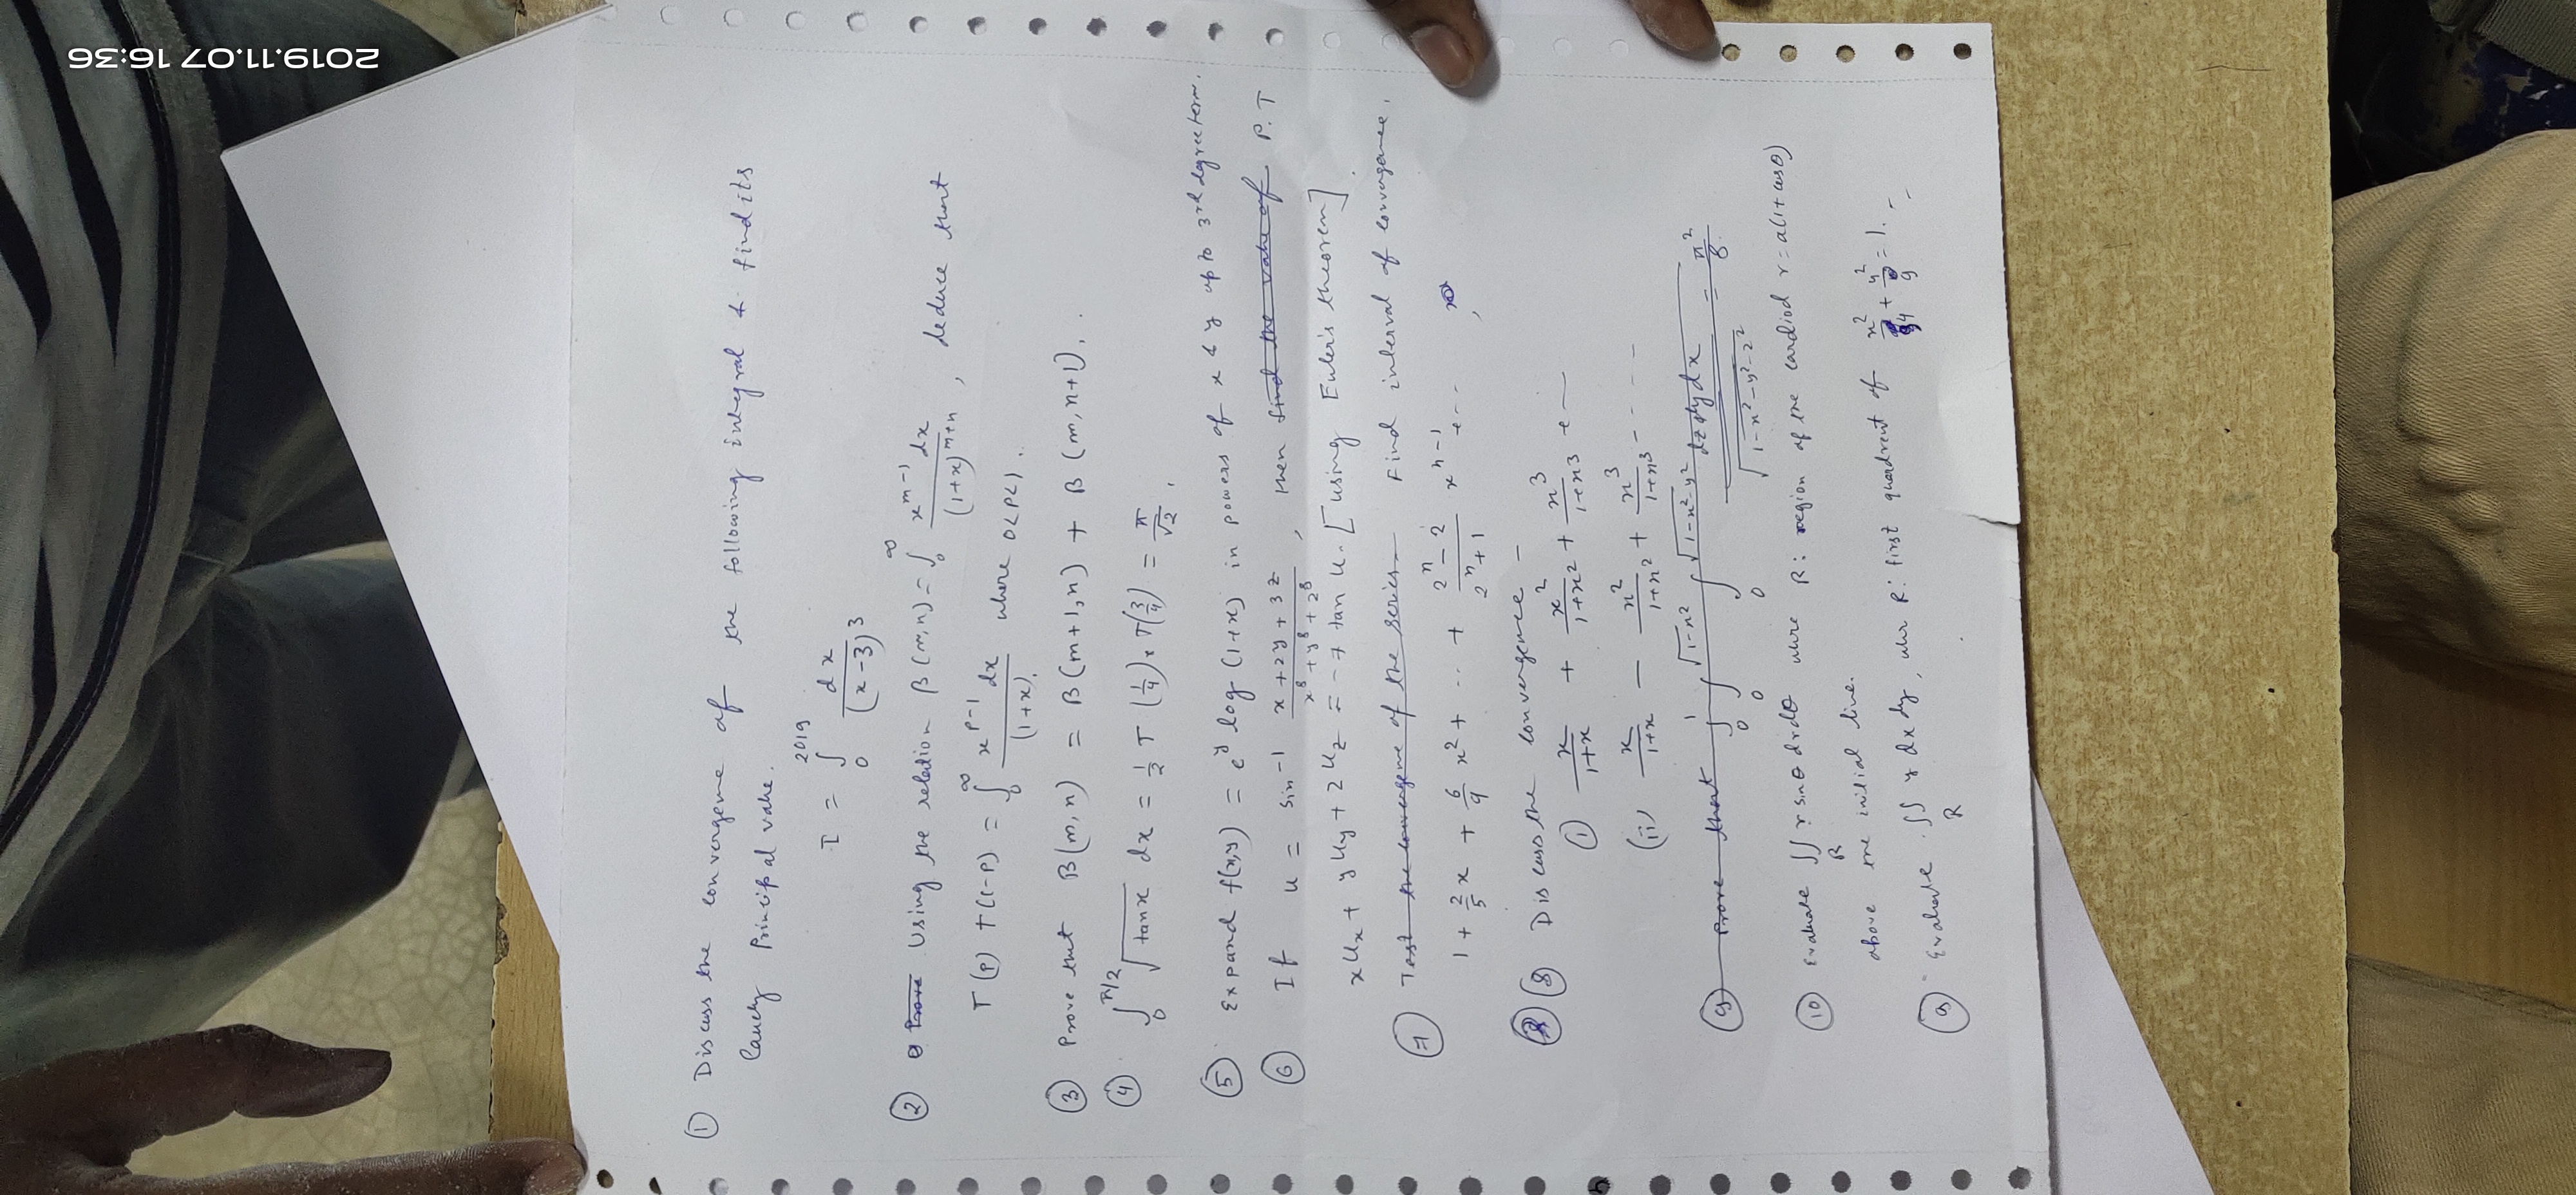 2019.11.07 16:36
① Discuss the convergence of the following integral & find its
Cauchy Principal value.
I = ∫₀^2019 dx/(x-3)^3
② Prove Using the relation β(m,n) = ∫₀^∞ x^(m-1) dx/(1+x)^(m+n), deduce that
Γ(p) Γ(1-p) = ∫₀^∞ x^(p-1) dx/(1+x) where 0<p<1.
③ Prove that B(m,n) = B(m+1,n) + B(m,n+1).
④ ∫₀^(π/2) √(tanx) dx = 1/2 Γ(1/4) × Γ(3/4) = π/√2.
⑤ Expand f(x,y) = e^y log(1+x) in powers of x & y up to 3rd degree term.
⑥ If u = sin^-1 (x+2y+3z)/(x^8+y^8+z^8), then find the value of P.T
x u_x + y u_y + z u_z = -7 tan u. [using Euler's theorem]
⑦ Test the convergence of the series Find interval of convergence.
1 + 2/5 x + 6/9 x^2 + ... + (2^n-2)/(2^n+1) x^(n-1) + ...
⑧ Discuss the convergence –
(i) x/(1+x) + x^2/(1+x^2) + x^3/(1+x^3) + —
(ii) x/(1+x) – x^2/(1+x^2) + x^3/(1+x^3) - - - -
⑨ Prove that ∫₀^1 ∫₀^√(1-x^2) ∫₀^√(1-x^2-y^2) dz dy dx/√(1-x^2-y^2-z^2) = π^2/8.
⑩ Evaluate ∬_R r sinθ dr dθ where R: region of the cardiod r = a(1+cosθ)
above the initial line.
⑨ Evaluate ∬_R y dx dy, whr R: first quadrent of x^2/4 + y^2/9 = 1.